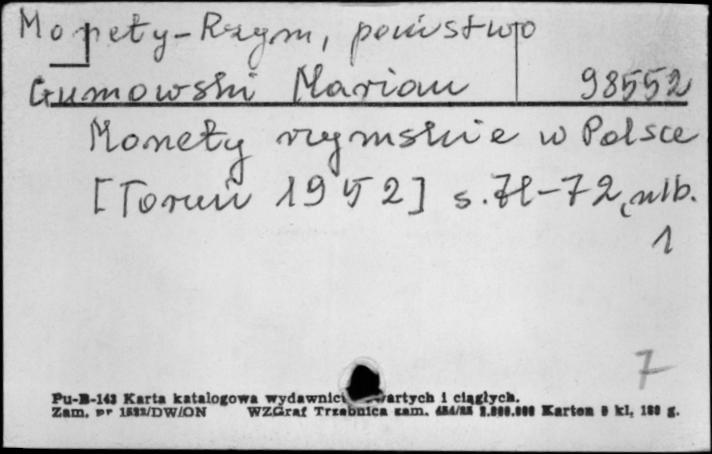 Monety-Rzym, państwo
Gumowski Marian 98552
Monety rzymskie w Polsce
[Toruń 1952] s. 71-72, nlb.
1
7
Pu-B-143 Karta katalogowa wydawnict wartych i ciągłych.
Zam. nr 1532/DW/ON WZGraf Trzebnica zam. Karton kl. 180 g.